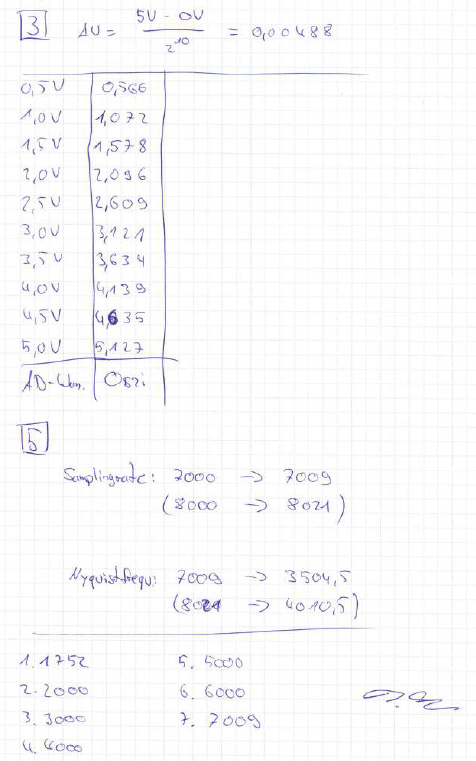 3 ΔU = 5V - 0V / 2^10 = 0,00488
0,5V 0,566
1,0V 1,072
1,5V 1,578
2,0V 2,096
2,5V 2,609
3,0V 3,121
3,5V 3,634
4,0V 4,139
4,5V 4,635
5,0V 5,127
AD-Wan. Oszi
5
Samplingrate: 7000 -> 7009
(8000 -> 8021)
Nyquistfrequ: 7009 -> 3504,5
(8021 -> 4010,5)
1. 1752
2. 2000
3. 3000
4. 4000
5. 5000
6. 6000
7. 7009